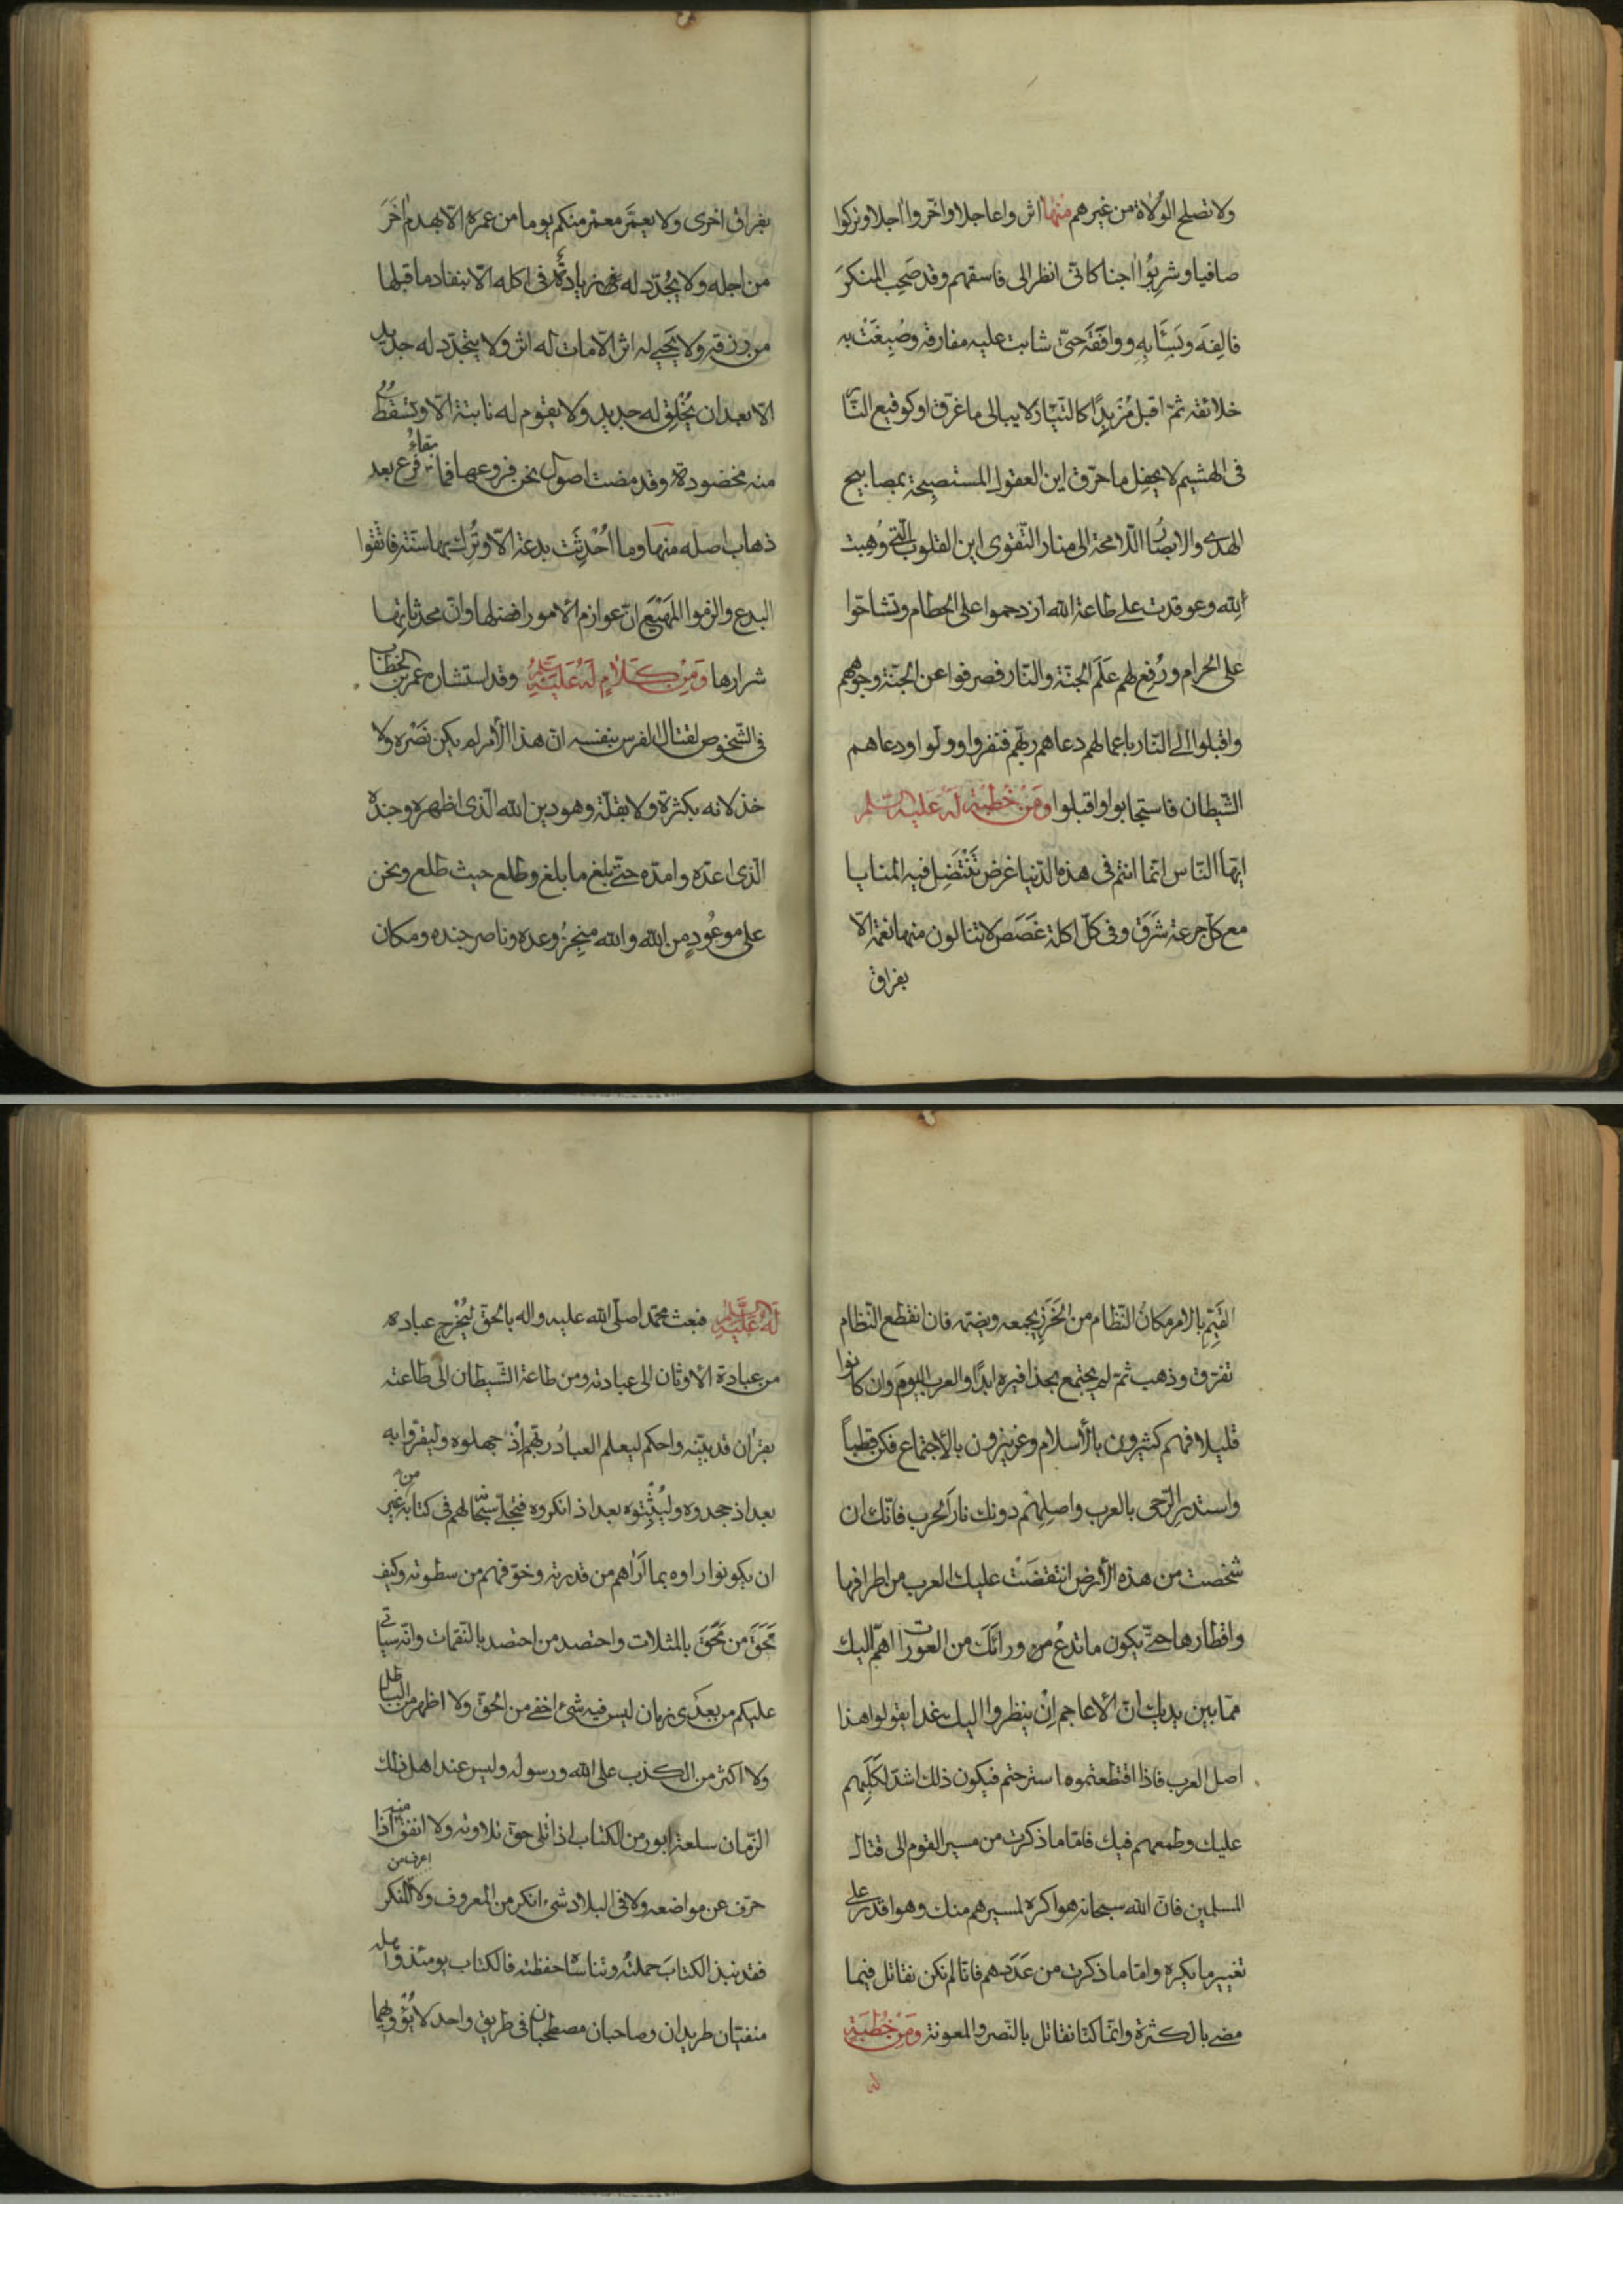 ولا تصلح الولاة من غيرهم منها اثروا عاجلا واخّروا اجلا وتركوا
صافيا وشربُوا اجنا كانّى انظر الى فاسقهم وقد صَحِبَ المنكرَ
فالِفَه وبَسِئَ به ووافقه حتّى شابت عليه مفارقه وصُبِغَتْ به
خلائقه ثمّ اقبل مُزبِدًا كالتيّار لا يبالى ما غرّق او كوقع النّار
فى الهشيم لا يحفِل ما حرّق اين العقول المستصبِحة بمصابيح
الهدى والابصار اللّامحة الى منار التّقوى اين القلوب الّتى وُهِبت
لله وعوقدت على طاعة الله ازدحموا على الحطام وتشاحّوا
على الحرام ورُفِع لهم عَلَم الجنّة والنّار فصرفوا عن الجنّة وجوههم
واقبلوا الى النّار باعمالهم دعاهم ربّهم فنفروا وولّوا ودعاهم
الشّيطان فاستجابوا واقبلوا ومن خطبة له عليه السّلم
ايّها النّاس انّما انتم فى هذه الدّنيا غرض تَنْتَضِل فيه المنايا
مع كلّ جرعة شَرَق وفى كلّ اكلة غَصَص لا تنالون منها نعمة الّا
بفراق
بفراق اخرى ولا يعمَّر معمّر منكم يوما من عمره الّا بهدم اخَرَ
من اجله ولا يُجدّد له زيادةٌ فى اكله الّا بنفاد ما قبلها
من رزقه ولا يَحيى له اثر الّا مات له اثر ولا يتجدّد له جديد
الّا بعد ان يُخْلِق له جديد ولا يقوم له نابتة الّا وتسقطُ
منه محضودة وقد مضت اصول نحن فروعها فما بقاءُ فرع بعد
ذهاب اصله منها وما اُحْدِثَت بدعة الّا وتُرِك بها سنّة فاتّقوا
البدع والزموا المَهْيَع انّ عوازم الامور افضلها وانّ محدثاتِها
شرارها ومن كلام له عليه السّلم وقد استشاره عمر بن الخطّاب
فى الشّخوص لقتال الفرس بنفسه انّ هذا الأمر لم يكن نَصْره ولا
خذلانه بكثرة ولا بقلّة وهو دين الله الّذى اظهره وجنده
الّذى اعدّه وامدّه حتّى بلغ ما بلغ وطلع حيث طلع ونحن
على موعُودٍ من الله والله منجِزُ وعده وناصر جنده ومكان
القَيِّمِ بالامر مكانُ النّظام من الخَرَزِ يجمعه ويضمّه فان انقطع النّظام
تفرّق وذهب ثمّ لم يجتمع بحذافيره ابدًا والعرب اليومَ وان كانوا
قليلا فهم كثيرون بالأسلام وعزيزون بالأجتماع فكن قطباً
واستدرِ الرّحى بالعرب واصلِهِم دونك نارَ الحرب فانّك ان
شخصت من هذه الأرض انتقضَتْ عليك العرب من اطرافها
واقطارها حتّى يكون ما تدعُ من ورائك من العورات اهمّ اليك
ممّا بين يديك انّ الأعاجم اِنْ ينظروا اليك غدا يقولوا هذا
اصل العرب فاذا اقتطعتموه استرحتم فيكون ذلك اشدّ لكَلَبِهم
عليك وطمعهم فيك فامّا ما ذكرت من مسير القوم الى قتال
المسلمين فانّ الله سبحانه هو اكره لمسيرهم منك وهو اقدر على
تغيير ما يكره وامّا ما ذكرت من عَدَدِهم فانّا لم نكن نقاتل فيما
مضى بالكثرة وانّما كنّا نقاتل بالنّصر والمعونة ومن خُطبةٍ
له
له عليه السّلم فبعث محمّدا صلّى الله عليه واله بالحقّ ليُخْرِج عباده
من عبادة الأوثان الى عبادته ومن طاعة الشّيطان الى طاعته
بقران قد بيّنه واحكمه ليعلم العبادُ ربّهم اِذْ جهلوه وليقرّوا به
بعد اذ جحدوه وليُثْبِتوه بعد اذ انكروه فتجلّى سبحانه لهم فى كتابه من غير
ان يكونوا راوه بما اَراهم من قدرته وخوّفهم من سطوته وكيف
مَحَقَ من مَحَقَ بالمثلات واحتصد من احتصد بالنّقمات وانّه سياتى
عليكم من بعدى زمان ليس فيه شئ اخفى من الحقّ ولا اظهر من الباطل
ولا اكثر من الكذب على الله ورسوله وليس عند اهل ذلك
الزّمان سلعة ابور من الكتاب اذا تلى حقّ تلاوته ولا انفق منه اذا
حرّف عن مواضعه ولا فى البلاد شئ انكر من المعروف ولا اعرف من المنكر
فقد نبذ الكتابَ حملتُه وتناساه حفظته فالكتاب يومئذ واهله
منفيّان طريدان وصاحبان مصطحبان فى طريق واحد لا يُؤْويهما